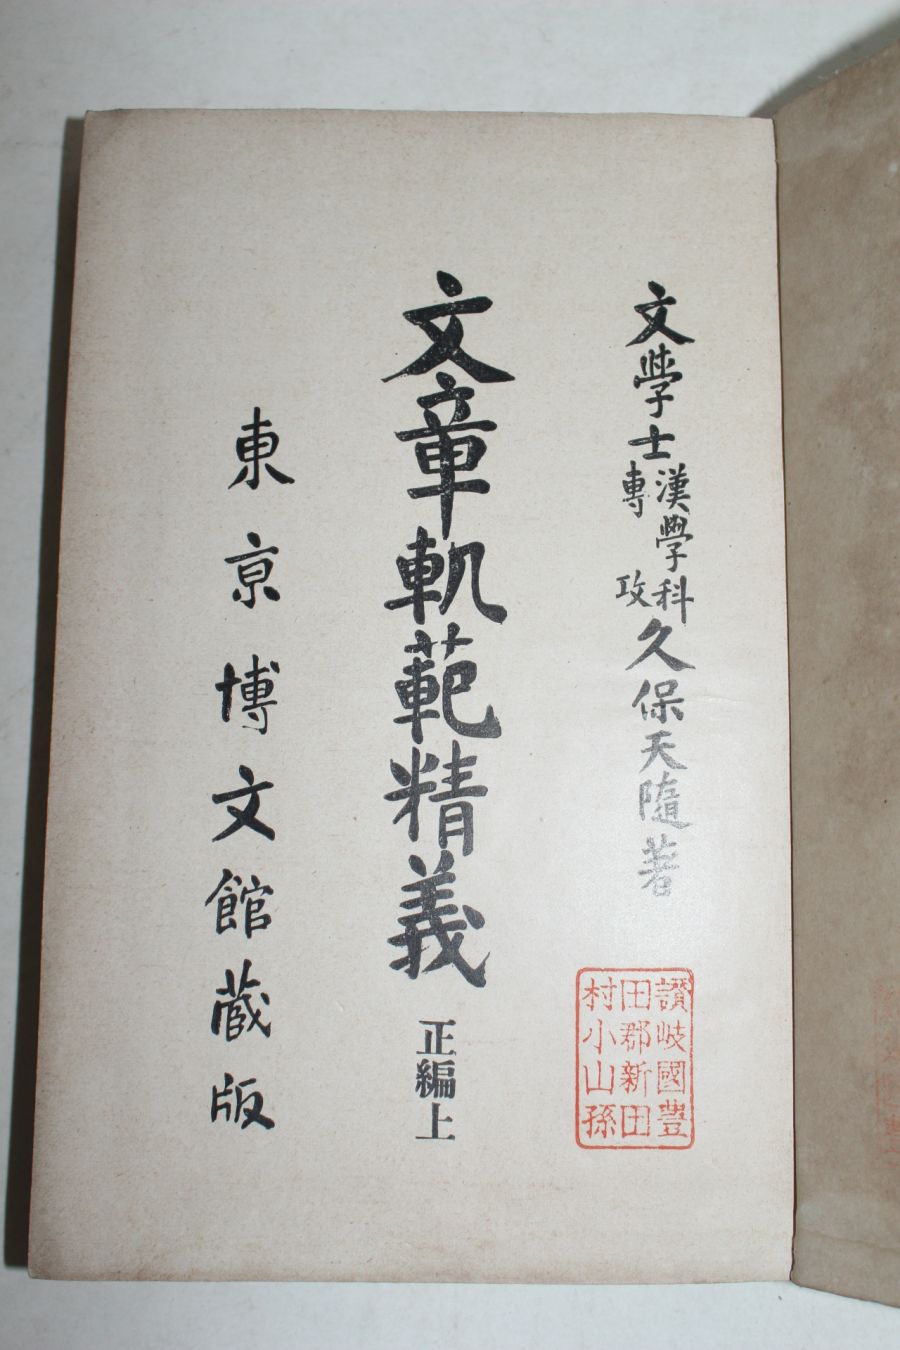 文學士漢學科專攻久保天隨著
文章軌範精義 正編上
東京博文館蔵版
讃岐國豊
田郡新田
村小山孫